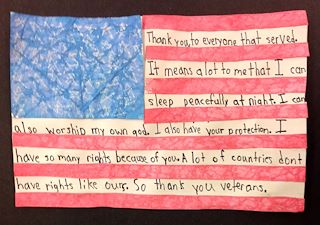 Thank you, to everyone that served.
It means a lot to me that I can
sleep peacefully at night. I can
also worship my own god. I also have your protection. I
have so many rights because of you. A lot of countries dont
have rights like ours. So thank you veterans.